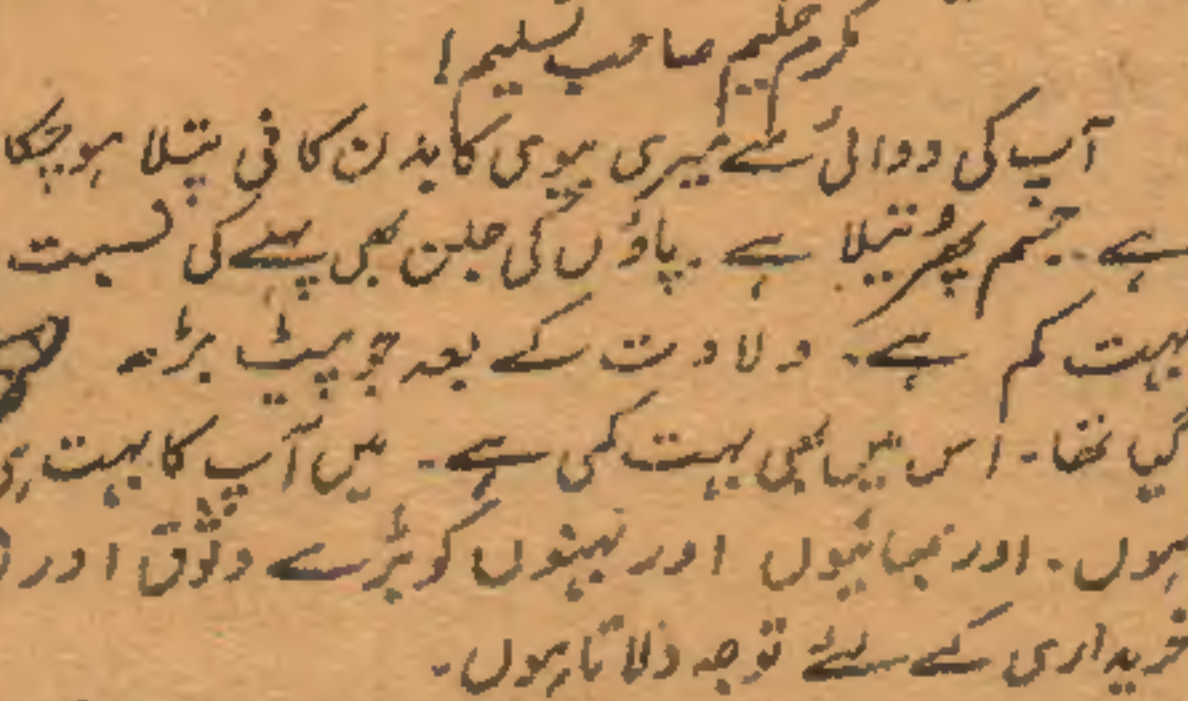 مکرم حکیم صاحب تسلیم!
آپ کی دوائی سے میری بیوی کا بدن کافی پتلا ہو چکا
ہے۔ جسم پھرتیلا ہے۔ پاؤں کی جلن بھی پہلے کی نسبت
بہت کم ہے۔ ولادت کے بعد جو پیٹ بڑھ
گیا تھا۔ اس میں بھی بہت کمی ہے۔ میں آپ کا بہت ہی
ہوں۔ اور بھائیوں اور بہنوں کو بڑے وثوق اور
خریداری کے لئے توجہ دلاتا ہوں۔